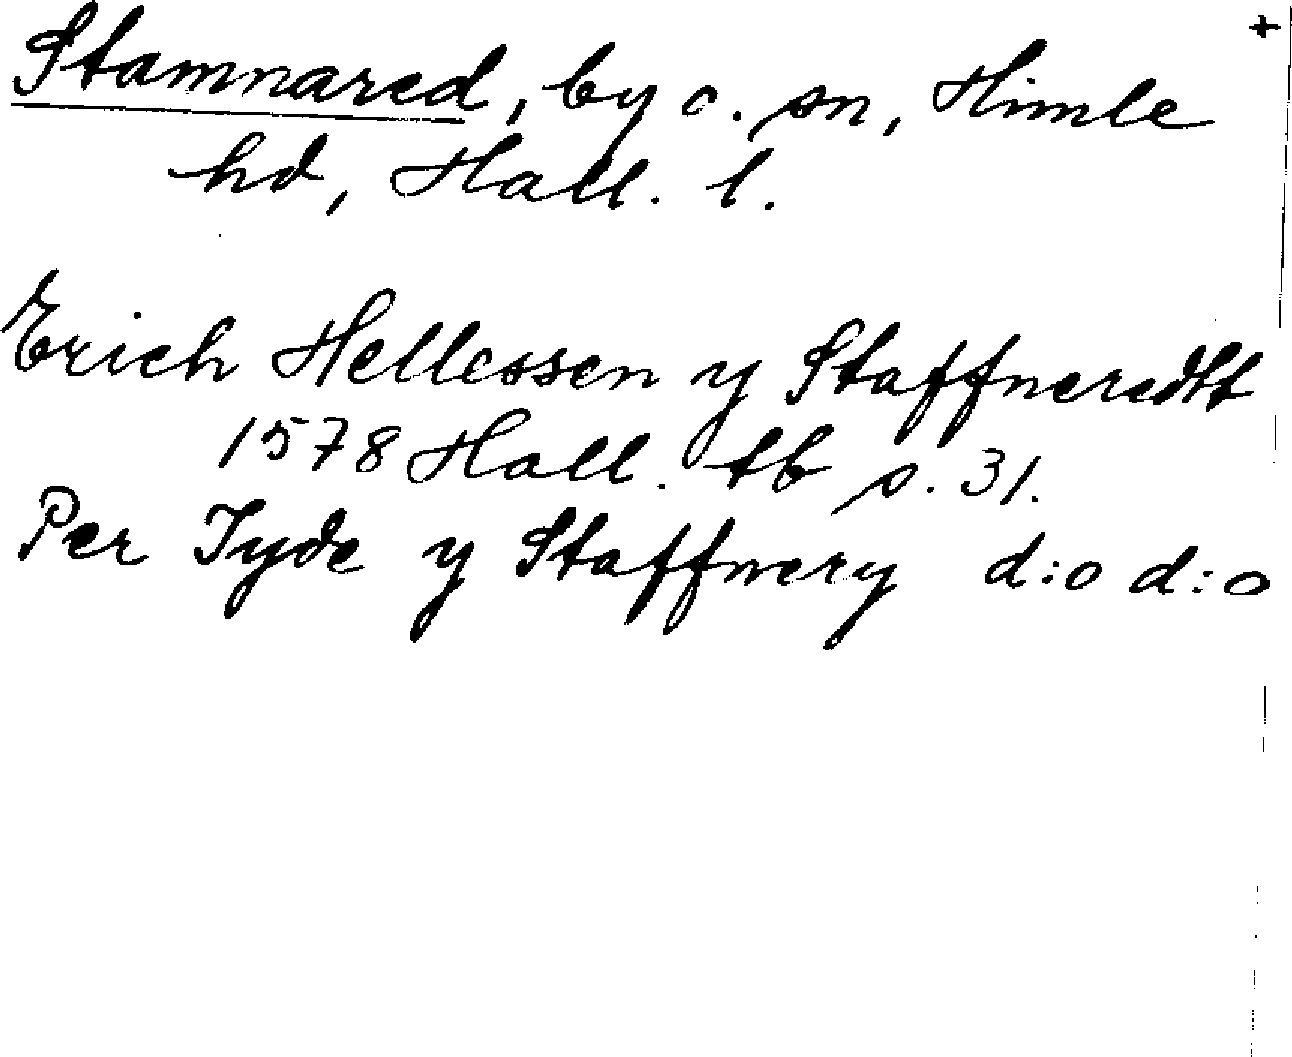 Stamnared, by o. sn, Himle +
hd, Hall. l.
Erich Hellessen y Staffneredtt
1578 Hall. tb s. 31.
Per Jyde y Staffnery d:o d:o